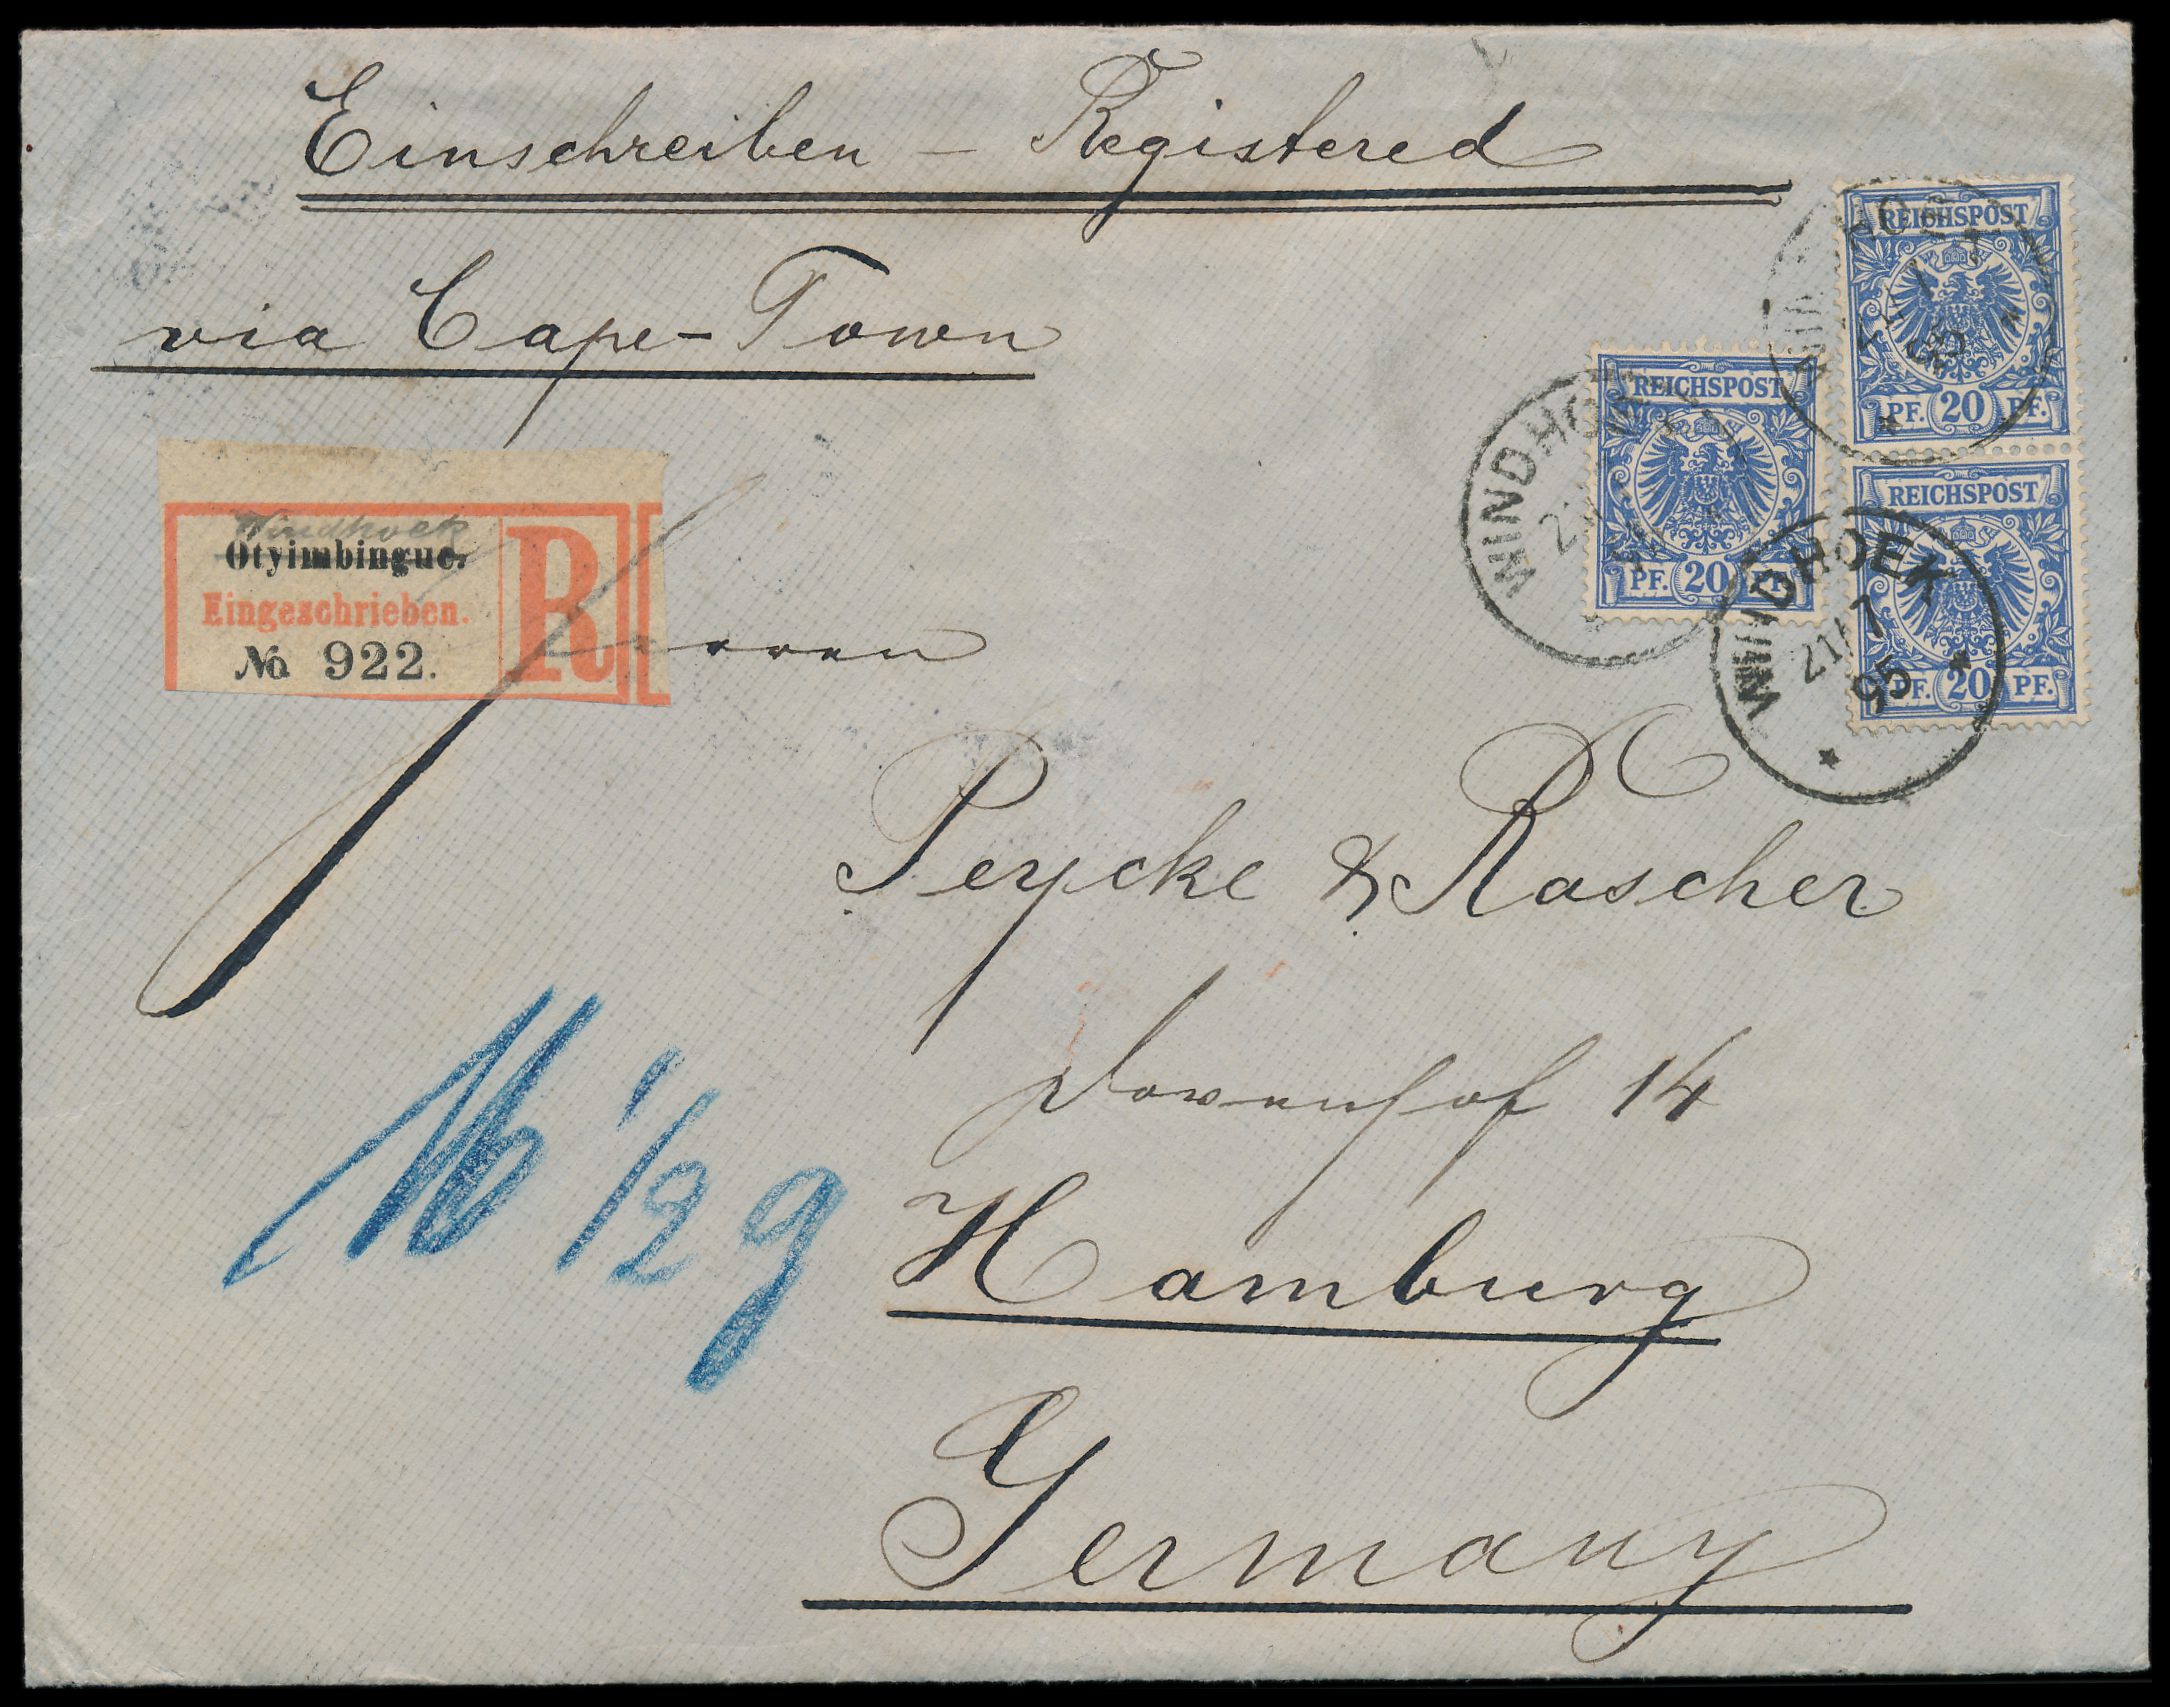 Einschreiben – Registered
via Cape-Town
Windhoek
Otyimbingue.
Eingeschrieben.
No 922.
R
REICHSPOST
PF. 20 PF.
REICHSPOST
PF. 20 PF.
REICHSPOST
PF. 20 PF.
WINDHOEK
WINDHOEK
21/7
95
Herren
Peycke & Rascher
Dovenhof 14
Hamburg
Germany
16 1/2 g